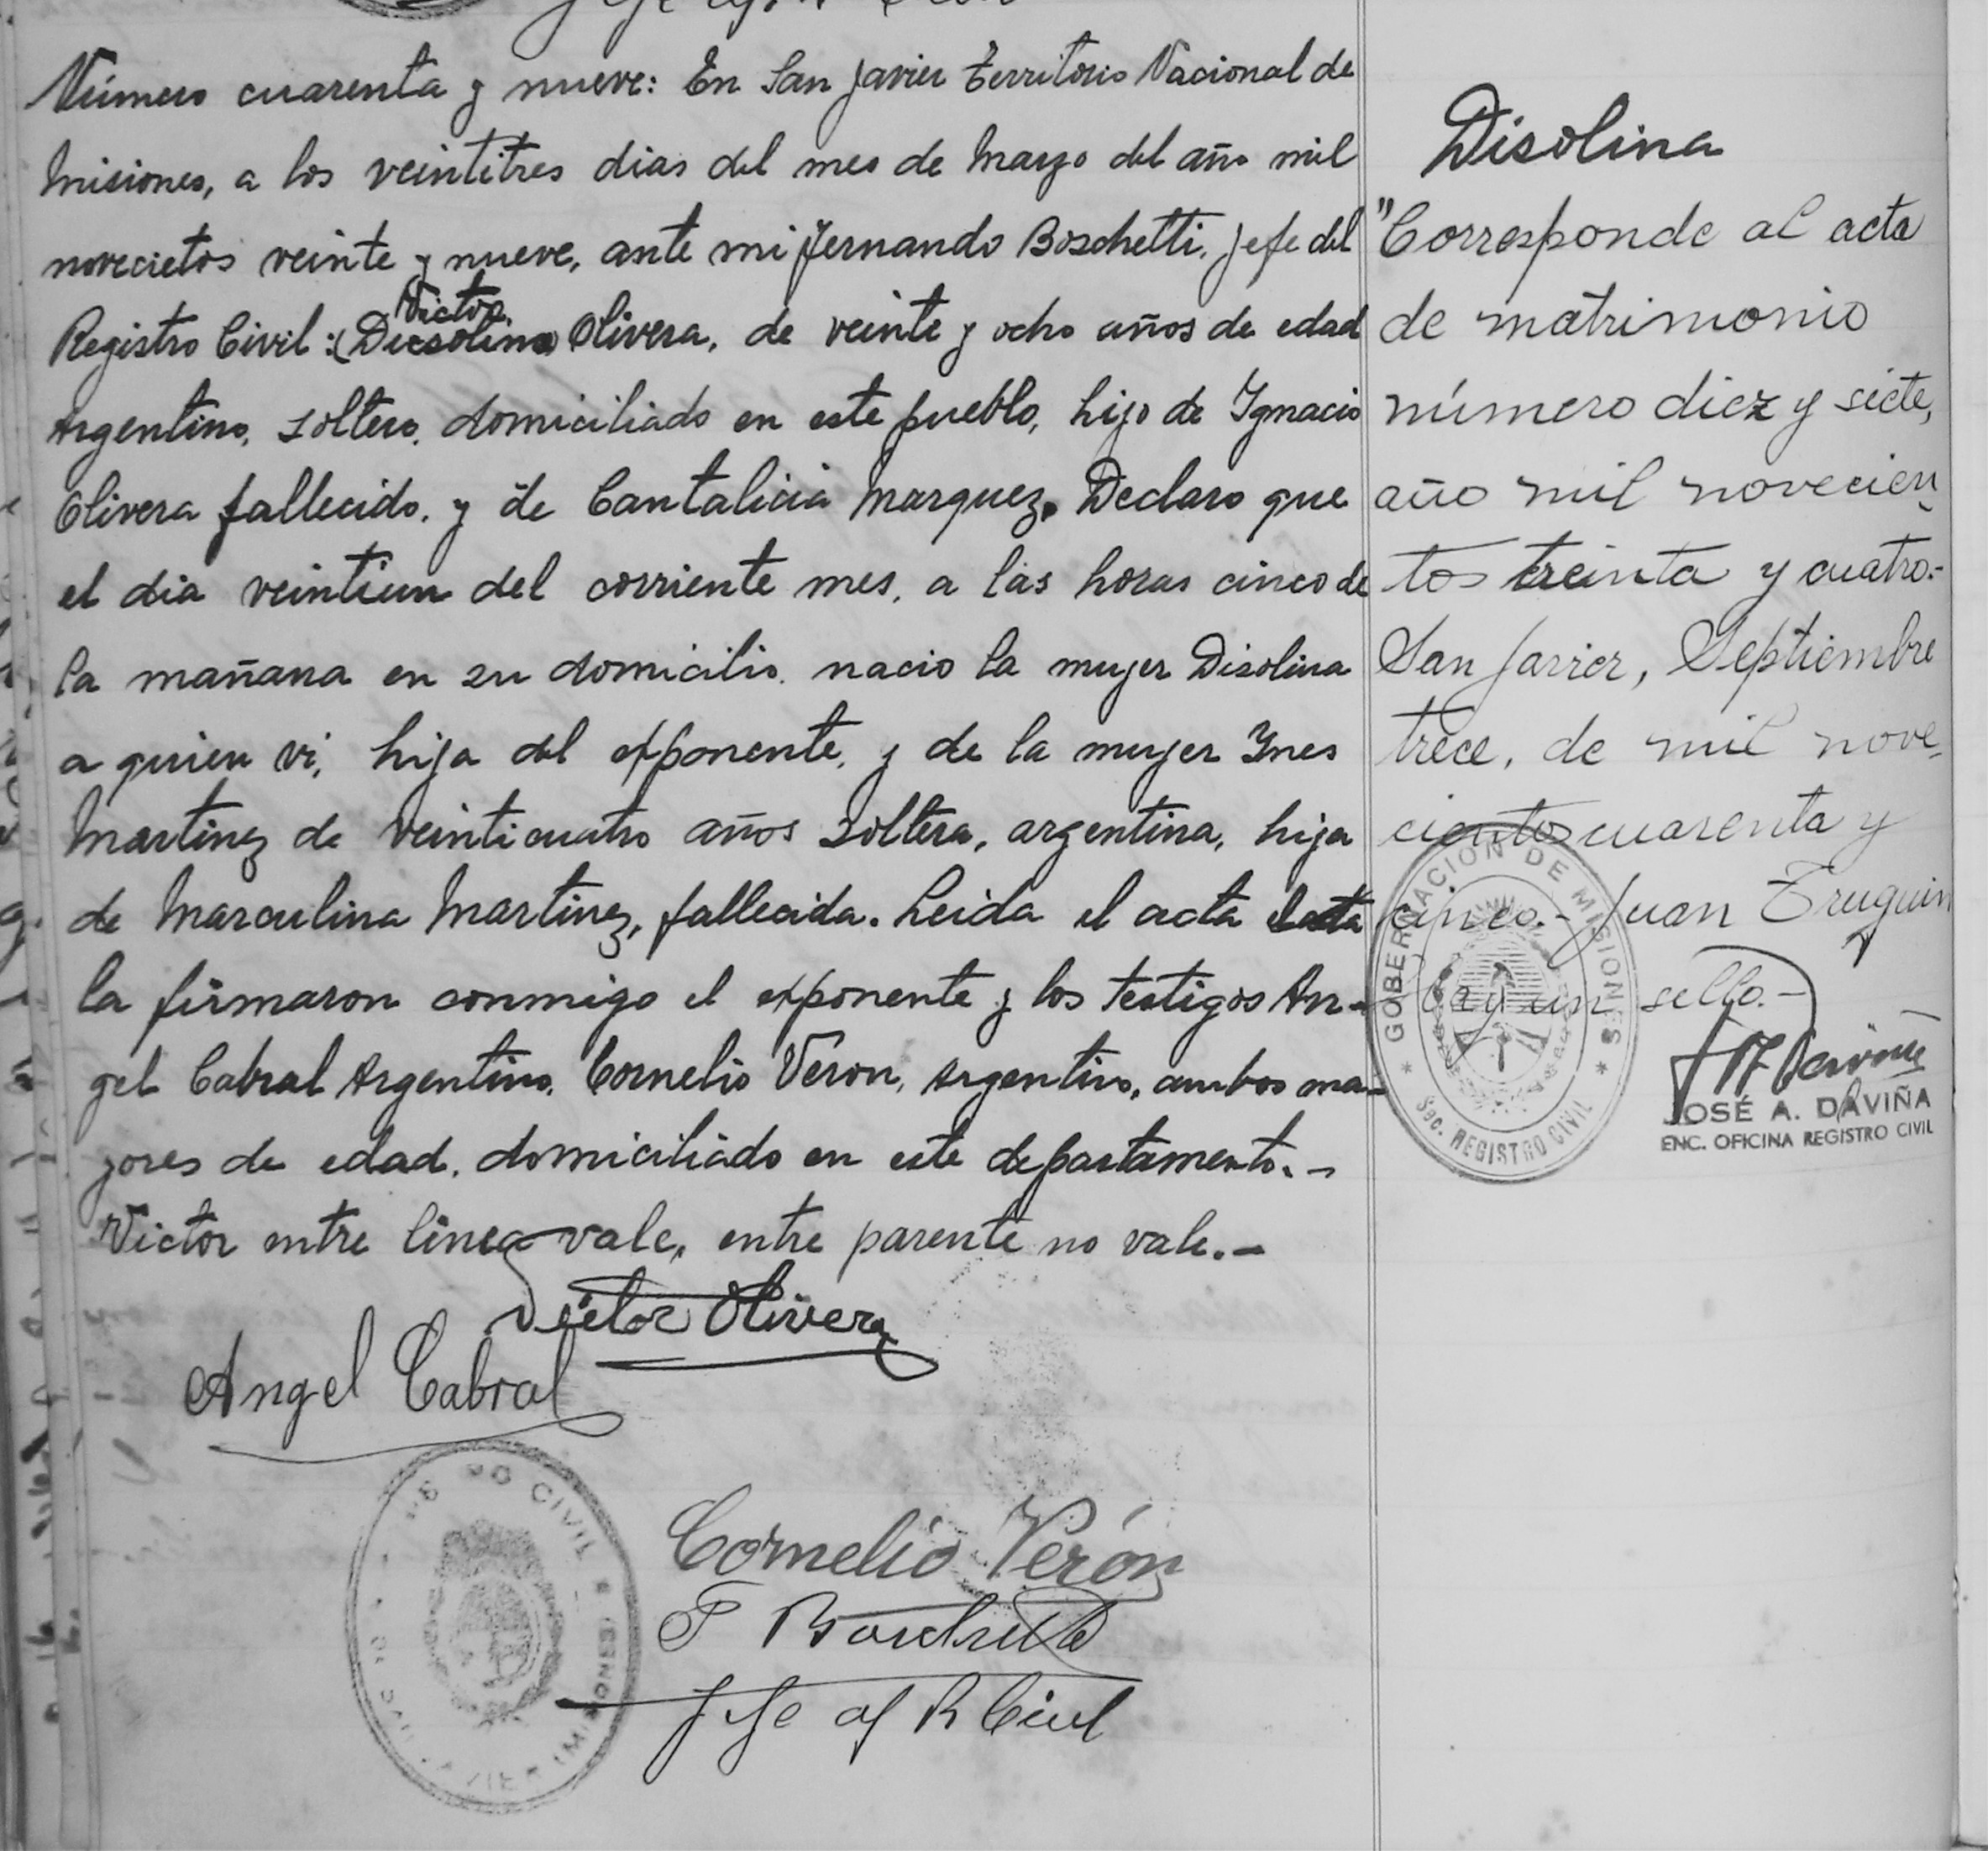 Número cuarenta y nueve: En San Javier Territorio Nacional de
Misiones, a los veintitres dias del mes de Marzo del año mil
novecietos veinte y nueve, ante mi Fernando Boschetti, Jefe del
Victor
Registro Civil: (Disolina) Olivera, de veinte y ocho años de edad
Argentino, soltero, domiciliado en este pueblo, hijo de Ygnacio
Olivera fallecido, y de Cantalicia Marquez. Declaro que
el dia veintiun del corriente mes, a las horas cinco de
la mañana en su domicilio nacio la mujer Disolina
a quien vi, hija del exponente, y de la mujer Ynes
Martinez de veinticuatro años soltera, argentina, hija
de Marculina Martinez, fallecida. Leida el acta
la firmaron conmigo el exponente y los testigos An-
gel Cabral Argentino, Cornelio Veron, Argentino, ambos ma-
yores de edad, domiciliado en este departamento.-
Victor entre linea vale, entre parente no vale.-
Victor Olivera
Angel Cabral
Cornelio Verón
F Boschetti
Jefe R Civil
CIVIL
Disolina
"Corresponde al acta
de matrimonio
número diez y siete,
año mil novecien
tos treinta y cuatro.-
San Javier, Septiembre
trece, de mil nove-
cientos cuarenta y
cinco.- Juan Truquin
Hay un sello.-
GOBERNACION DE MISIONES
Sec. REGISTRO CIVIL
JOSÉ A. DAVIÑA
ENC. OFICINA REGISTRO CIVIL